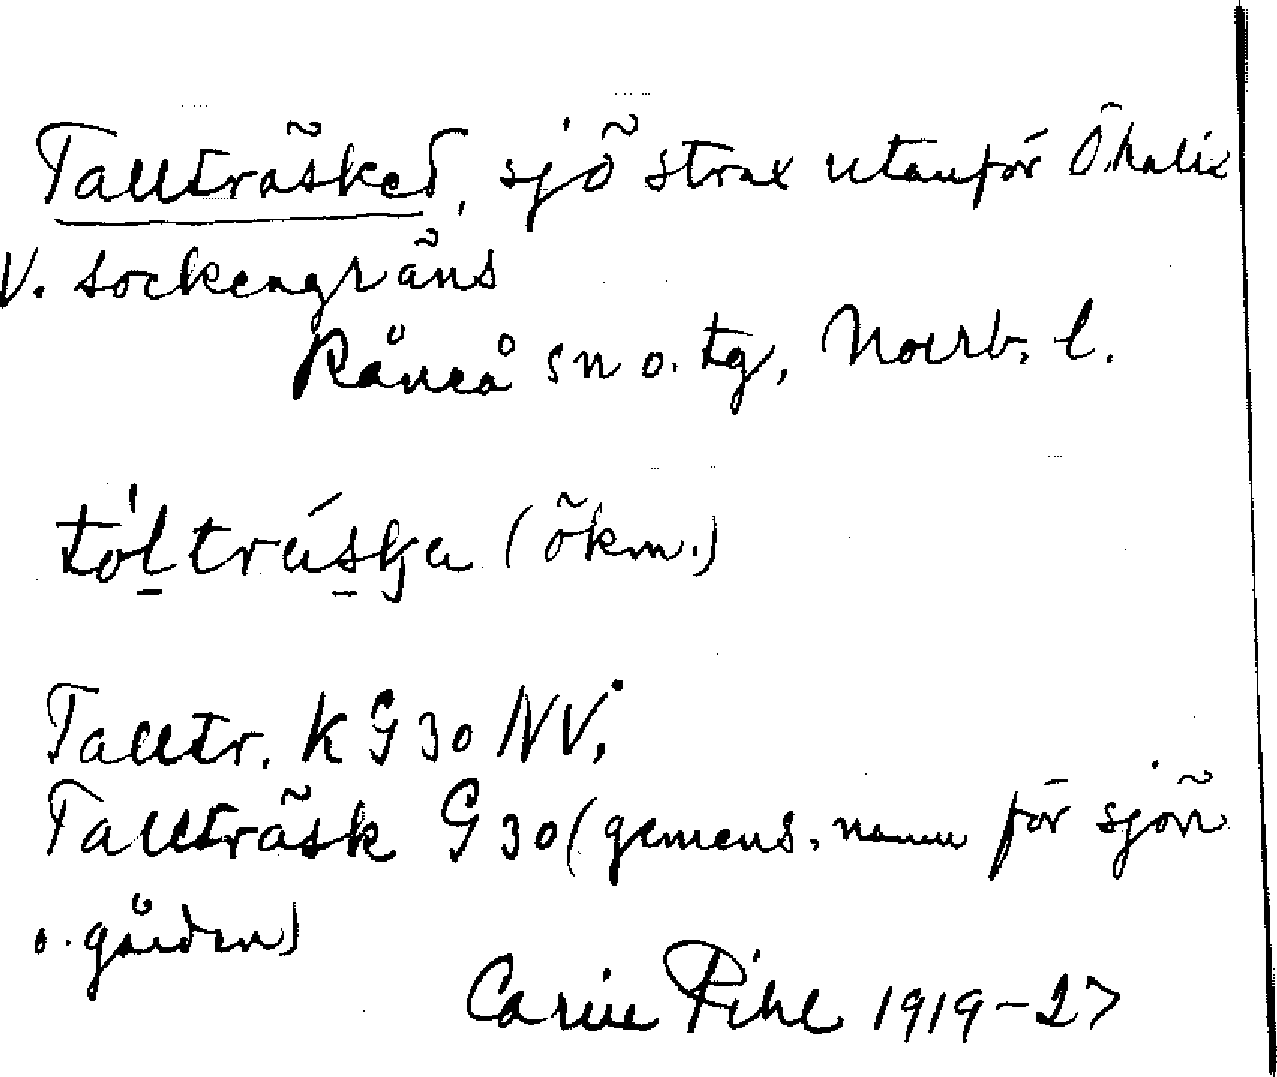 Tallträsket, sjö strax utanför Ö.kalix
V. sockengräns
Råneå sn o. tg, Norrb. l.
tòl̲tràs̲ka (ökm.)
Talltr. K G 30 NV.
Tallträsk G 30 (gemens. namn för sjön
o. gården)
Carin Pihl 1919-27